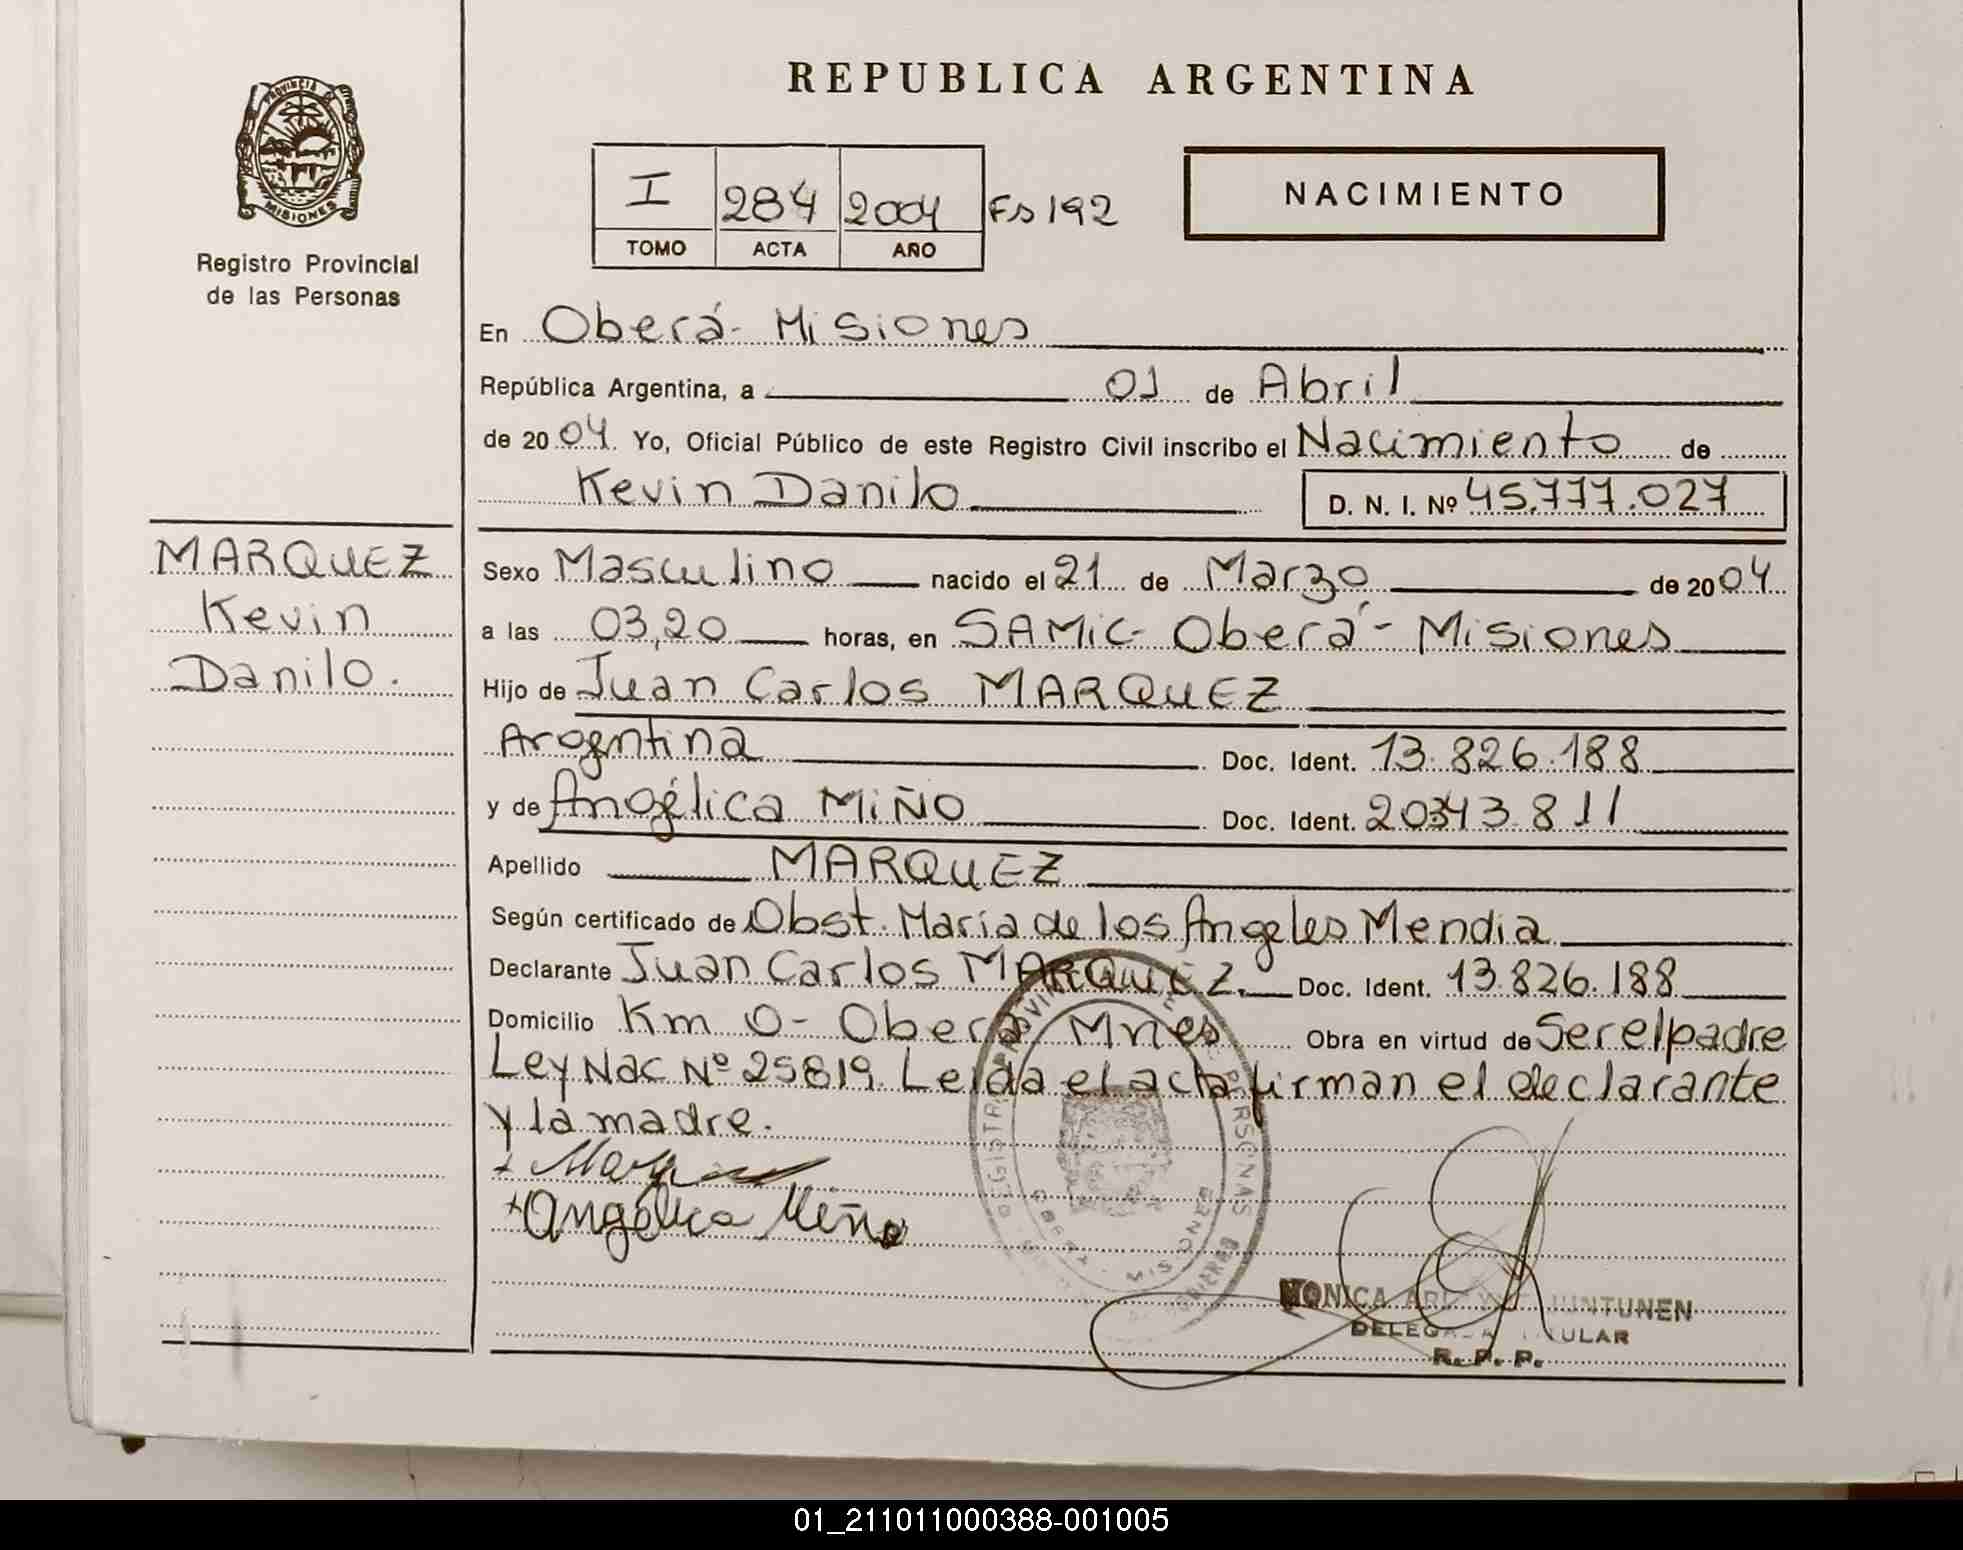 REPUBLICA ARGENTINA
PROVINCIA DE MISIONES
Registro Provincial
de las Personas
I 284 2004 Fs 192
TOMO ACTA AÑO
NACIMIENTO
En Oberá - Misiones
República Argentina, a 01 de Abril
de 2004 Yo, Oficial Público de este Registro Civil inscribo el Nacimiento de
Kevin Danilo D. N. I. Nº 45.777.027
MARQUEZ
Kevin
Danilo.
Sexo Masculino nacido el 21 de Marzo de 2004
a las 03,20 horas, en SAMIC - Oberá - Misiones
Hijo de Juan Carlos MARQUEZ
Argentina Doc. Ident. 13.826.188
y de Angélica MIÑO Doc. Ident. 20343.811
Apellido MARQUEZ
Según certificado de Obst. María de los Angeles Mendia
Declarante Juan Carlos MARQUEZ. Doc. Ident. 13.826.188
Domicilio Km 0 - Oberá Mnes Obra en virtud de Ser el padre
Ley Nac Nº 25819. Leida el acta firman el declarante
y la madre.
+Angélica Miño
MONICA JUNTUNEN
R. P. P.
01_211011000388-001005